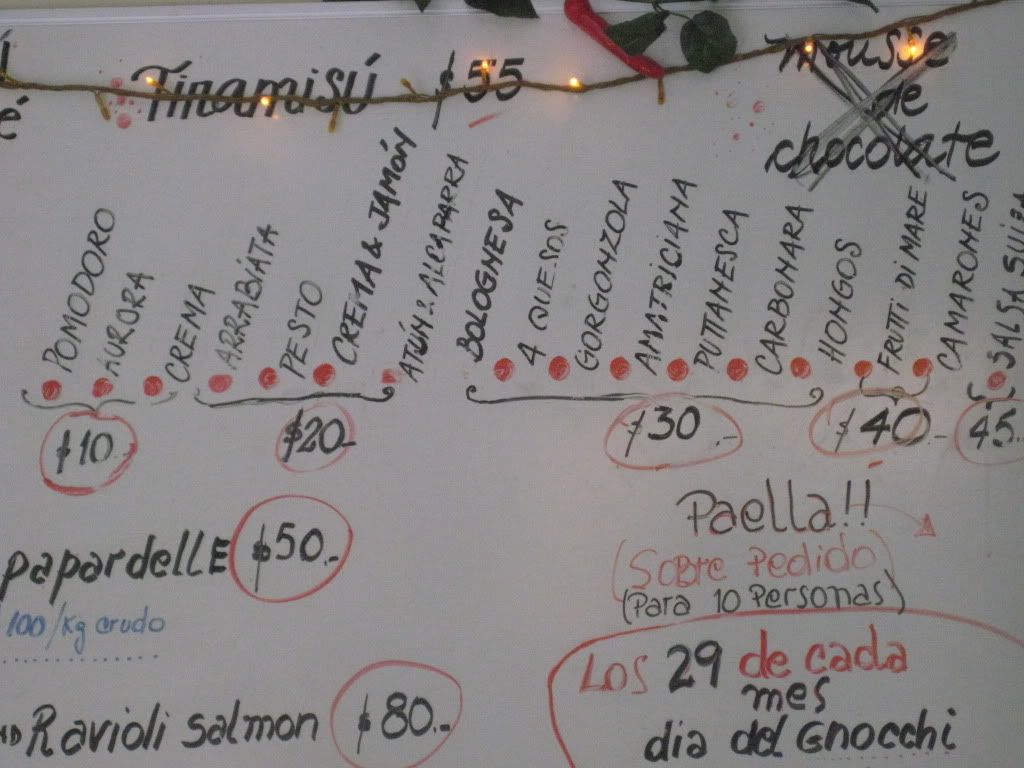 é
Tiramisú $55
mousse
de
chocolate
POMODORO
AURORA
CREMA
ARRABIÁTA
PESTO
CREMA & JAMÓN
ATÚN & ALCAPARRA
BOLOGNESA
4 QUESOS
GORGONZOLA
AMATRICIANA
PUTTANESCA
CARBONARA
HONGOS
FRUTTI DI MARE
CAMARONES
SALSA SUIZA
$10.-
$20-
$30.-
$40.-
45.
Paella!!
(Sobre Pedido)
(Para 10 Personas)
papardellE $50.-
100/Kg crudo
Ravioli salmon $80.-
LOS 29 de cada
mes
dia del Gnocchi